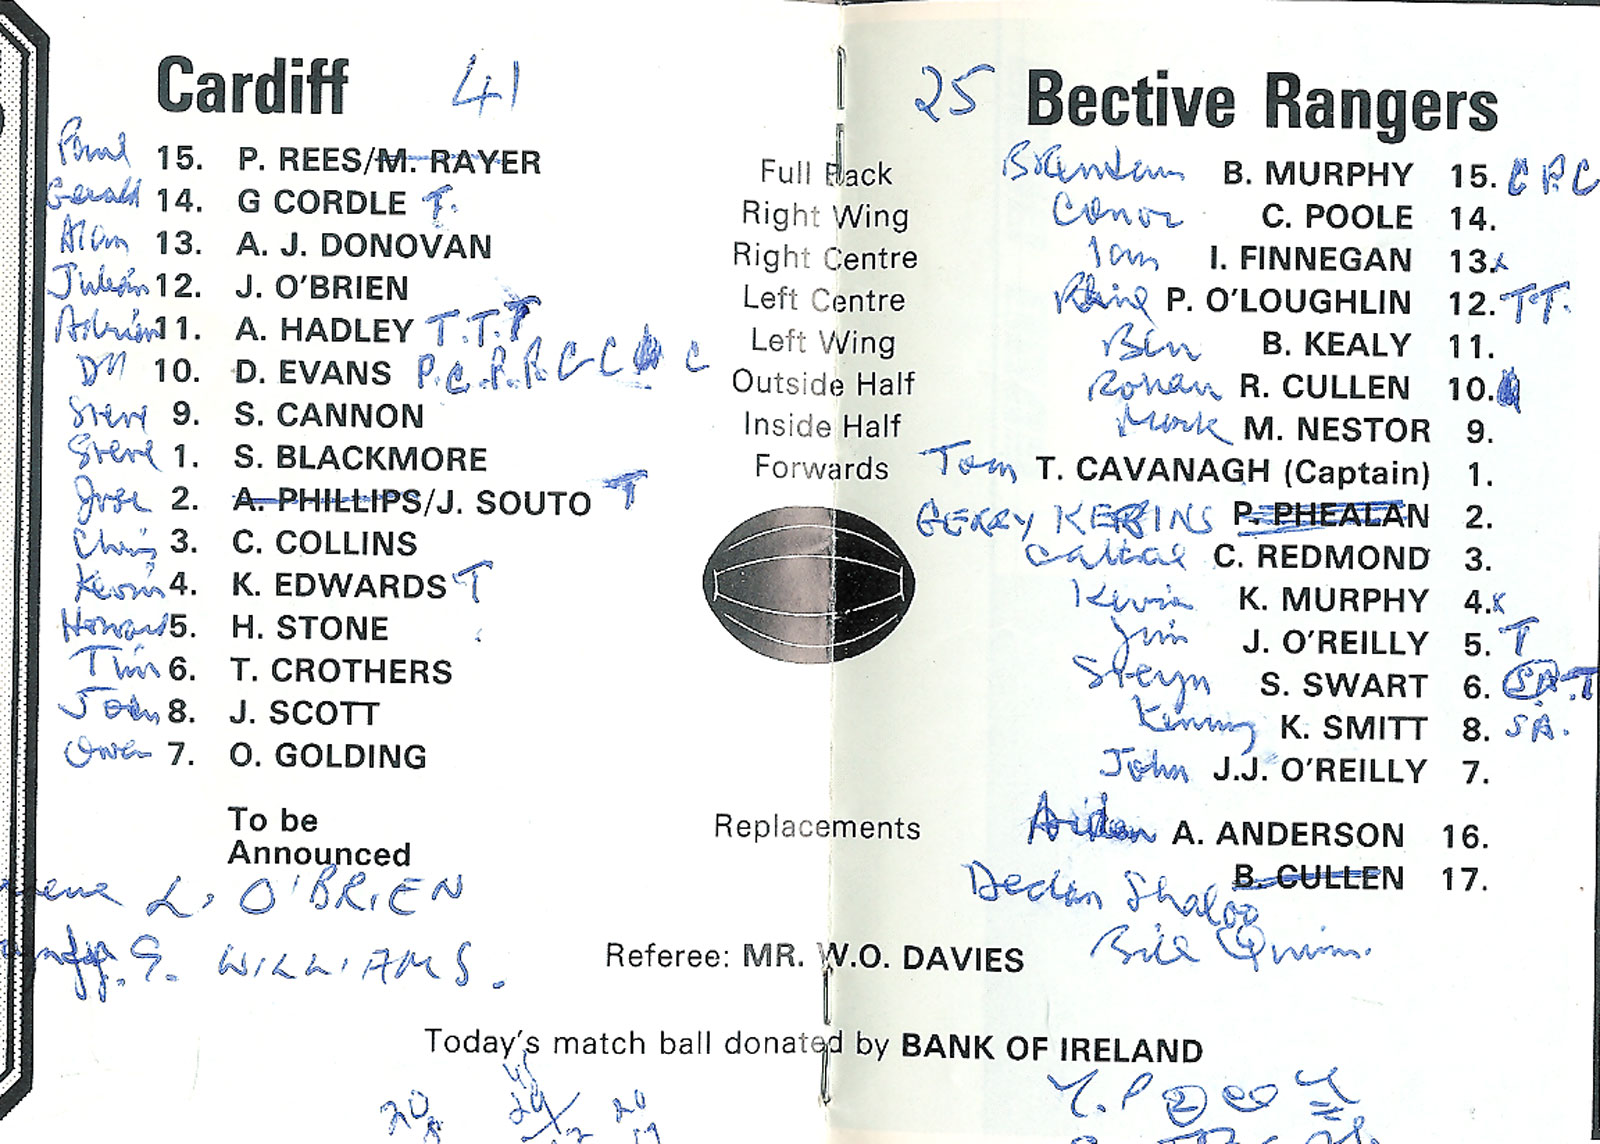 Cardiff 41 25 Bective Rangers
Paul 15. P. REES/M. RAYER Full Back Brendan B. MURPHY 15. C P.C
Gerald 14. G CORDLE T. Right Wing Conor C. POOLE 14.
Alan 13. A. J. DONOVAN Right Centre Ian I. FINNEGAN 13. x
Julian 12. J. O'BRIEN Left Centre P. O'LOUGHLIN 12. T T.
Adrian 11. A. HADLEY T.T.T Left Wing Ben B. KEALY 11.
10. D. EVANS P.C.P.P. C C C Outside Half Ronan R. CULLEN 10.
Steve 9. S. CANNON Inside Half Mark M. NESTOR 9.
Steve 1. S. BLACKMORE Forwards Tom T. CAVANAGH (Captain) 1.
Jose 2. A. PHILLIPS/J. SOUTO T GERRY KERINS P. PHEALAN 2.
Chris 3. C. COLLINS Cathal C. REDMOND 3.
Kevin 4. K. EDWARDS T Kevin K. MURPHY 4. x
Howard 5. H. STONE Jim J. O'REILLY 5. T
Tim 6. T. CROTHERS Steryn S. SWART 6. SA. T
John 8. J. SCOTT Kenny K. SMITT 8. SA.
Owen 7. O. GOLDING John J.J. O'REILLY 7.
To be Replacements Aidan A. ANDERSON 16.
Announced B. CULLEN 17.
L. O'BRIEN Declan
G. WILLIAMS. Bill Quinn.
Referee: MR. W.O. DAVIES
Today's match ball donated by BANK OF IRELAND
20 20